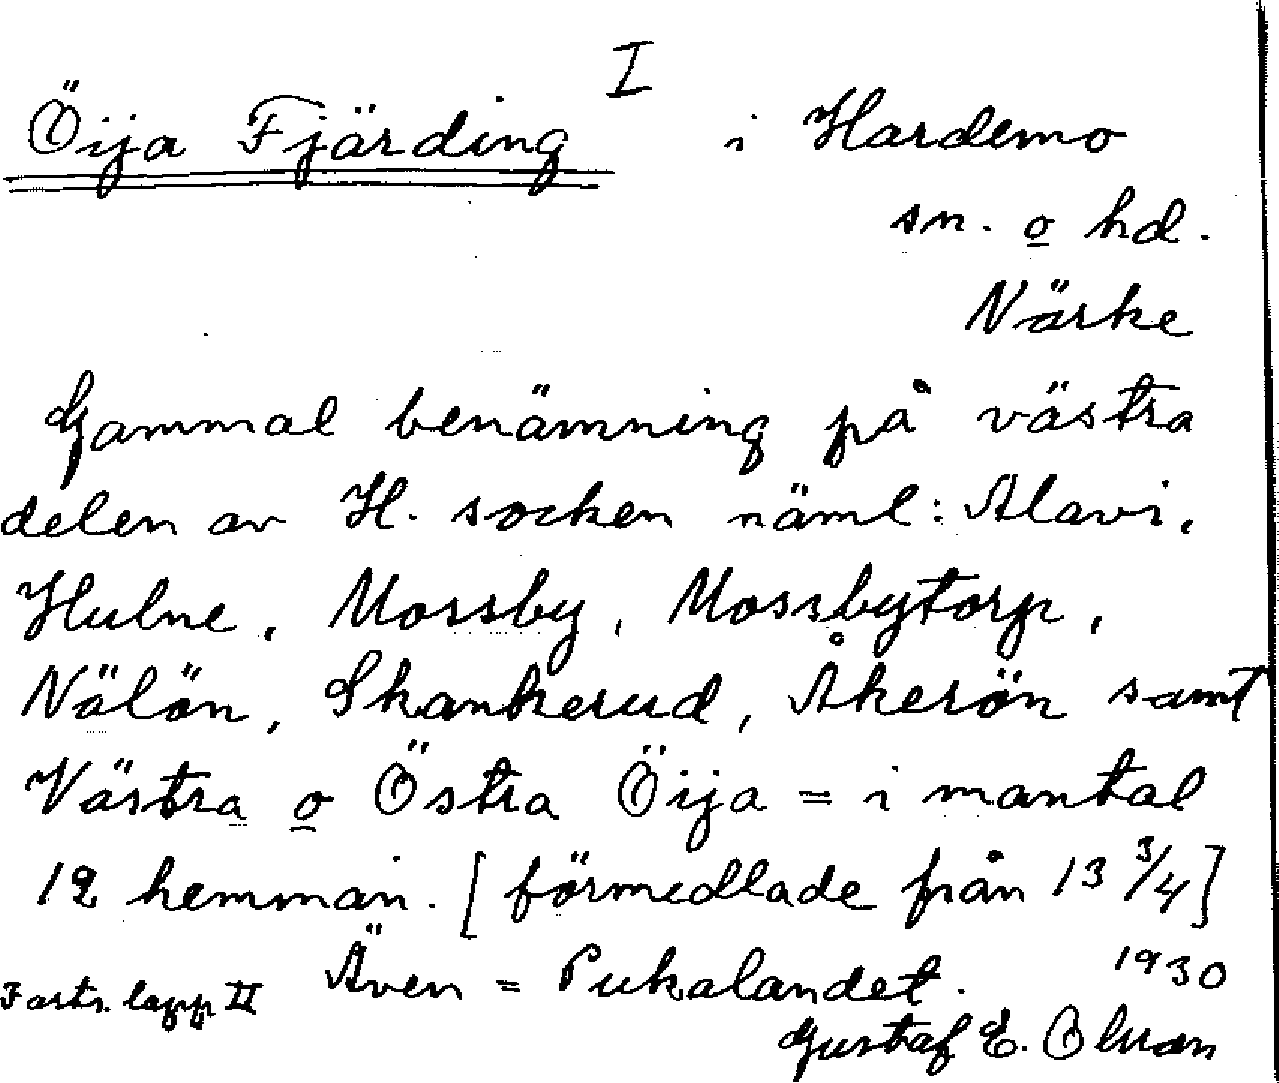 I
Öija Fjärding i Hardemo
sn. o hd.
Närke
Gammal benämning på västra
delen av H. socken näml: Alavi,
Hulne, Mossby, Mossbytorp,
Nälön, Skankerud, Åkerön samt
Västra o Östra Öija = i mantal
12 hemman. [förmedlade från 13 3/4]
Även = Pukalandet. 1930
Forts. lapp II
Gustaf E. Olman